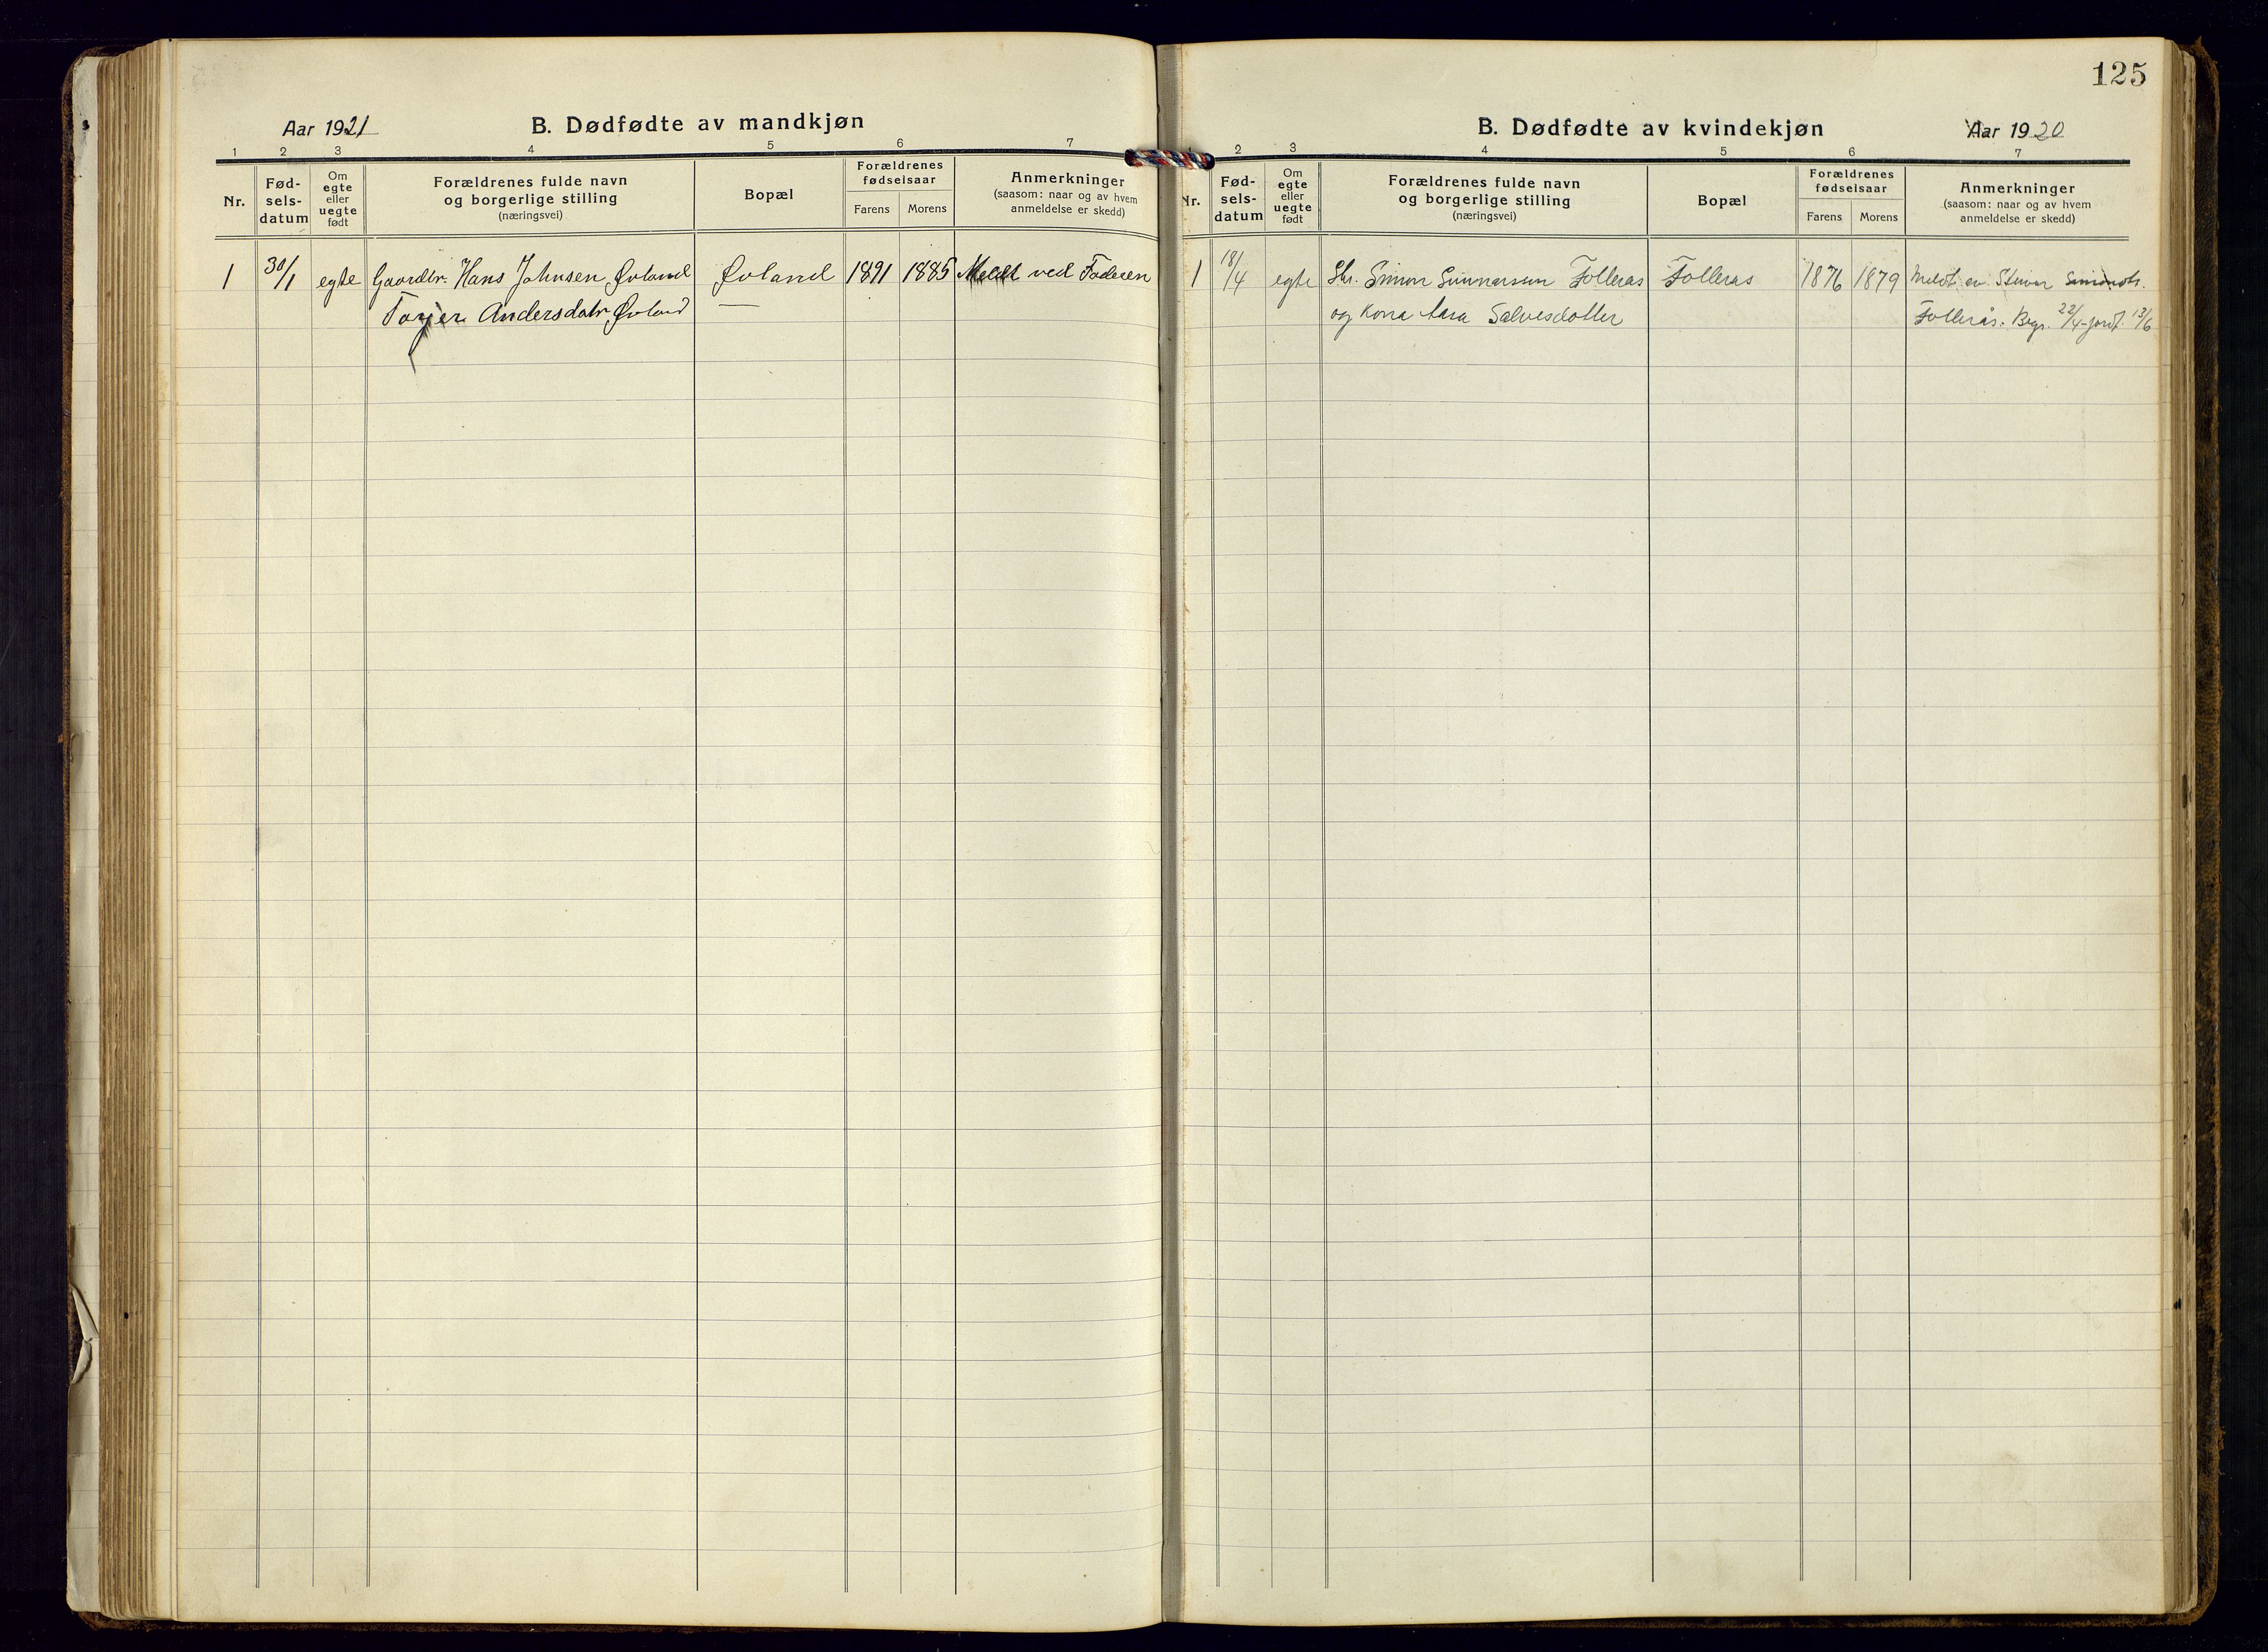 Aar 1921
B. Dødfødte av mandkjøn
1 2 3 4 5 6 7
Nr.
Fød-
sels-
datum
Om
egte
eller
uegte
født
Forældrenes fulde navn
og borgerlige stilling
(næringsvei)
Bopæl
Forældrenes
fødselsaar
Farens Morens
Anmerkninger
(saasom: naar og av hvem
anmeldelse er skedd)
1 30/1 egte Gaardbr. Hans Johnsen Øvland Øvland 1891 1885 Meldt ved Faderen
Andersdatr Øvland —
125
B. Dødfødte av kvindekjøn
Aar 1920
2 3 4 5 6 7
Nr.
Fød-
sels-
datum
Om
egte
eller
uegte
født
Forældrenes fulde navn
og borgerlige stilling
(næringsvei)
Bopæl
Forældrenes
fødselsaar
Farens Morens
Anmerkninger
(saasom: naar og av hvem
anmeldelse er skedd)
1 18/4 egte Simon Gunnarson Follerås Follerås 1876 1879 Meldt av
og kona Salvesdotter Follerås. Begr. 22/4 - jordf. 13/6